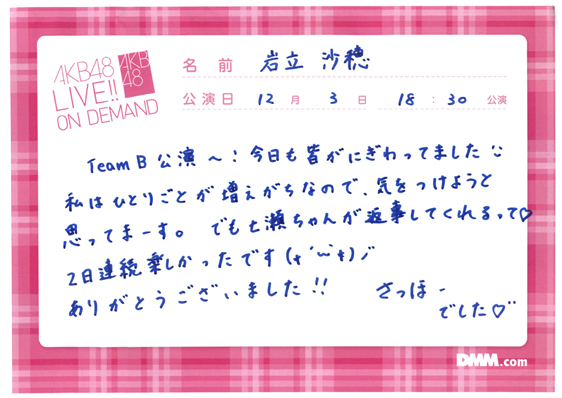 AKB48
LIVE!!
ON DEMAND
AKB
48
名前 岩立 沙穂
公演日 12月 3日 18:30 公演
TeamB 公演〜!今日も皆がにぎわってました
私はひとりごとが増えがちなので、気をつけようと
思ってまーす。 でも七瀬ちゃんが返事してくれるって♡
2日連続楽しかったです(*´ω`*)ノ
ありがとうございました!!
さっほー
でした♡
DMM.com